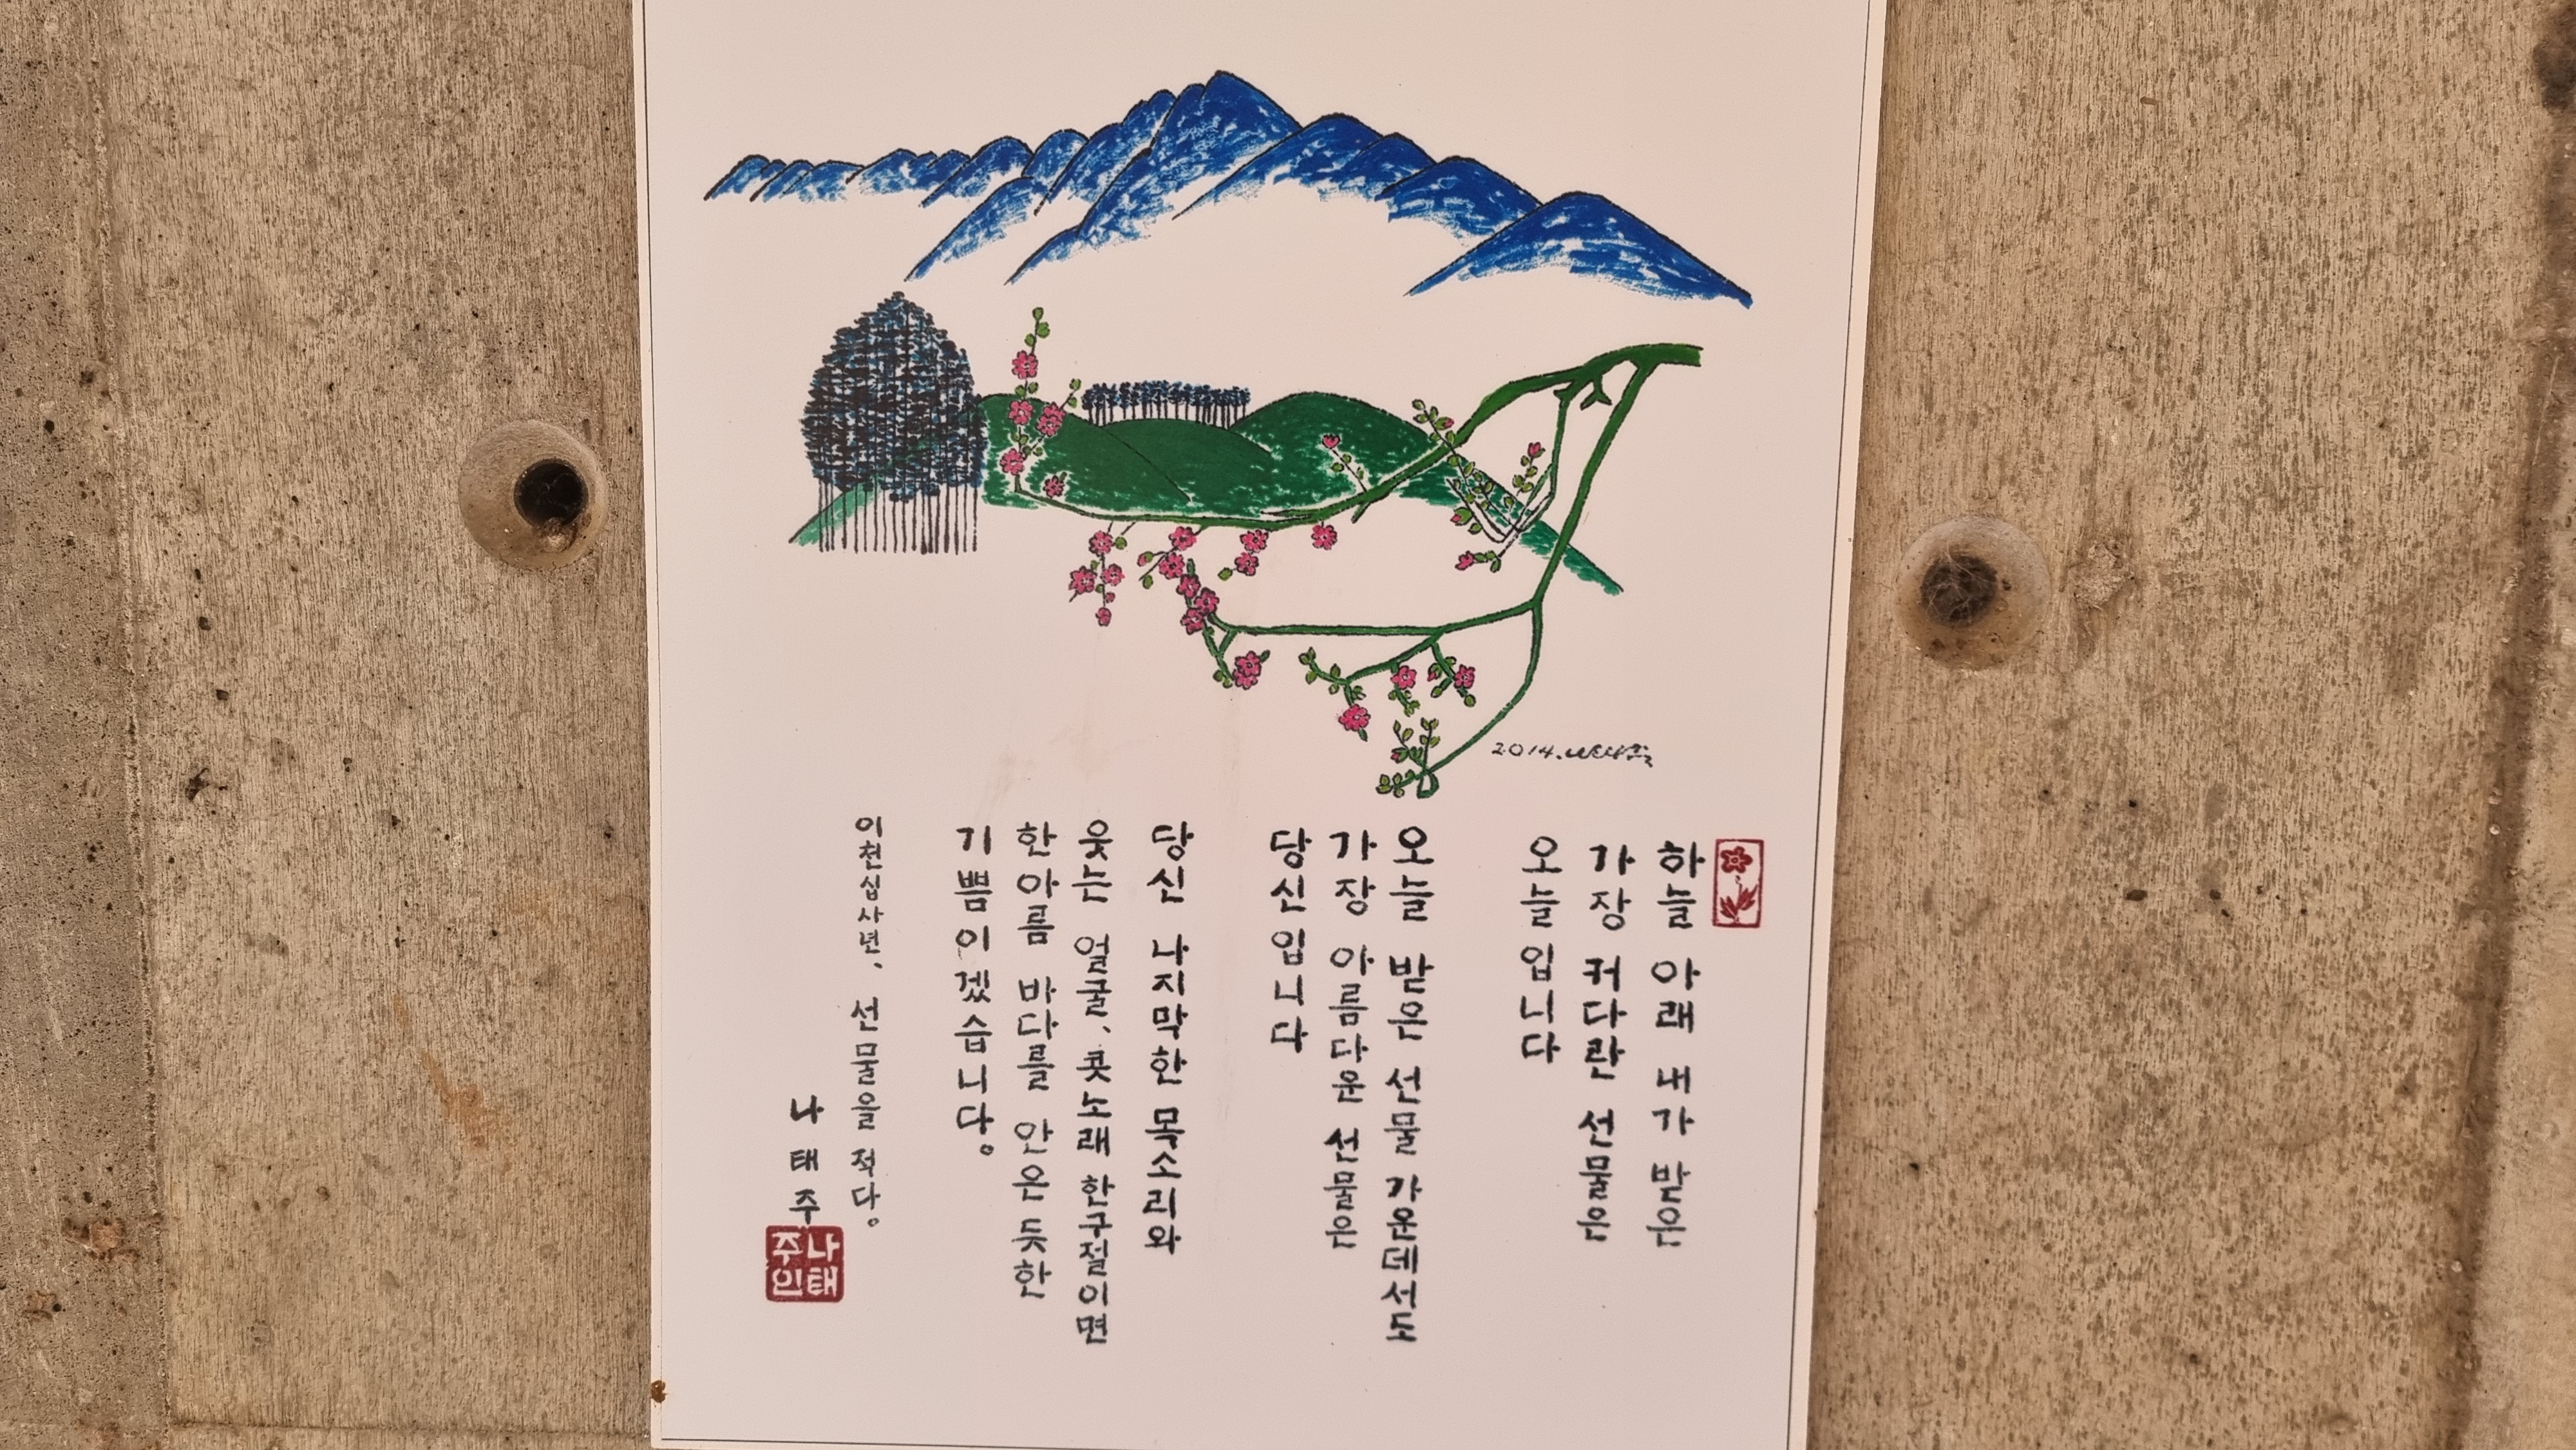 2014.
하늘 아래 내가 받은
가장 커다란 선물은
오늘입니다
오늘 받은 선물 가운데서도
가장 아름다운 선물은
당신입니다
당신 나지막한 목소리와
웃는 얼굴、콧노래 한구절이면
한아름 바다를 안은 듯한
기쁨이겠습니다。
이천십사년、선물을 적다。
나태주
나태
주인